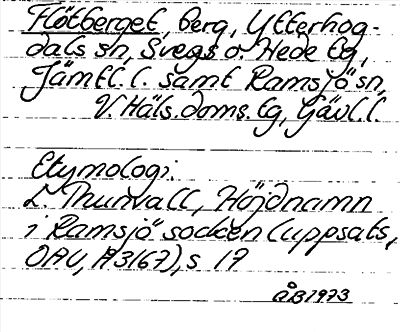 Flötberget, berg, Ytterhog-
dals sn, Svegs o. Hede tg,
Jämtl. l. samt Ramsjö sn,
V. Häls. doms. tg, Gävl. l.
Etymologi:
L. Thunvall, Höjdnamn
i Ramsjö socken (uppsats,
OAU, A3167), s 17
ÅB 1973